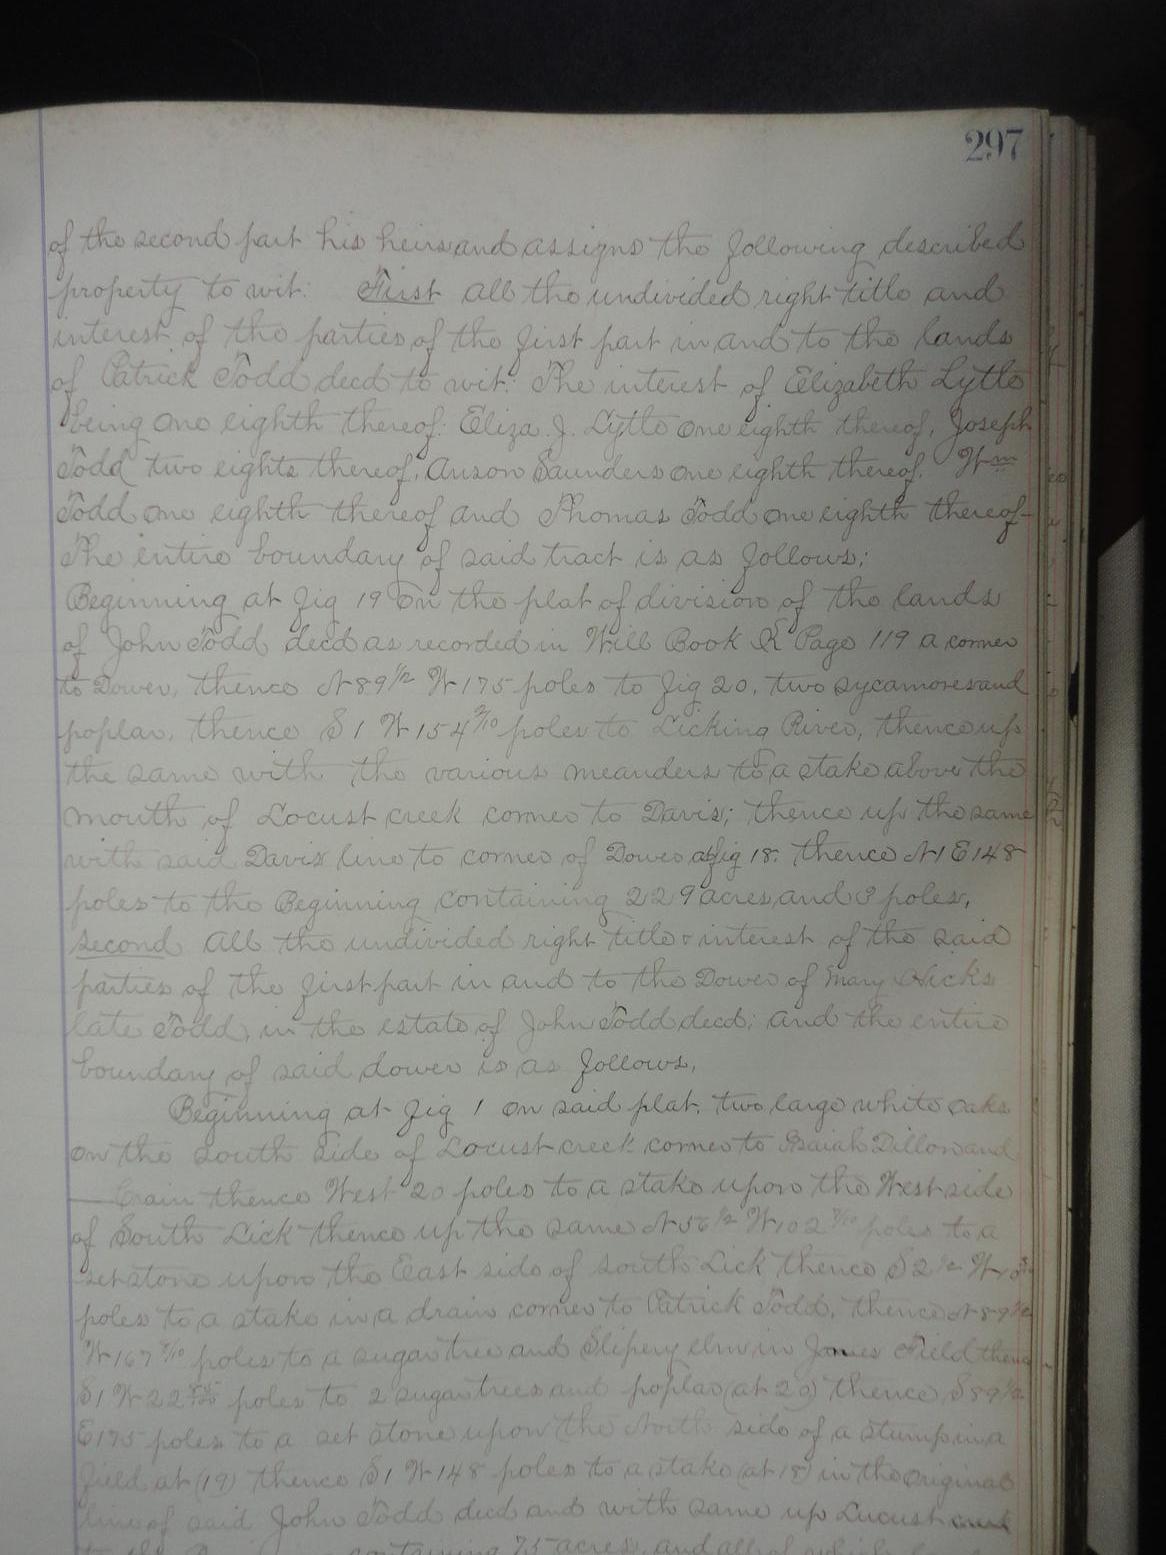 297
of the second part his heirs and assigns the following described
property to wit: First all the undivided right title and
interest of the parties of the first part in and to the lands
of Patrick Todd decd to wit: The interest of Elizabeth Lytle
being one eighth thereof: Eliza J. Lytle one eighth thereof, Joseph
Todd two eights thereof, Anson Saunders one eighth thereof. Wm
Todd one eighth thereof and Thomas Todd one eighth thereof-
The entire boundary of said tract is as follows;
Beginning at fig 19 on the plat of division of the lands
of John Todd decd as recorded in Will Book Page 119 a corner
to Dower, thence N 89 1/2 W 175 poles to fig 20, two sycamores and
poplar, thence S 1 W 154 poles to Licking River, thence up
the same with the various meanders to a stake above the
mouth of Locust creek corner to Davis; thence up the same
with said Davis line to corner of Dower at fig 18. thence N 1 E 148
poles to the Beginning containing 229 acres and poles,
second All the undivided right title & interest of the said
parties of the first part in and to the Dower of Mary Hicks
late Todd, in the estate of John Todd decd; and the entire
boundary of said dower is as follows,
Beginning at fig 1 on said plat, two large white oaks
on the south side of Locust creek corner to Isaiah Dillon and
Crain thence West 20 poles to a stake upon the West side
of South Lick thence up the same N 56 1/2 W 102 poles to a
set stone upon the East side of South Lick thence S 2 1/2 W
poles to a stake in a drain corner to Patrick Todd, thence N 89 1/2
W 167 poles to a sugar tree and Slipery elm in James Field thence
S 1 W 22 poles to 2 sugar trees and poplar (at 20) thence S 89 1/2
E 175 poles to a set stone upon the North side of a stump in a
field at (19) thence S 1 W 148 poles to a stake (at 18) in the original
line of said John Todd decd and with same up Lucust creek
to the containing 75 acres, and all of which